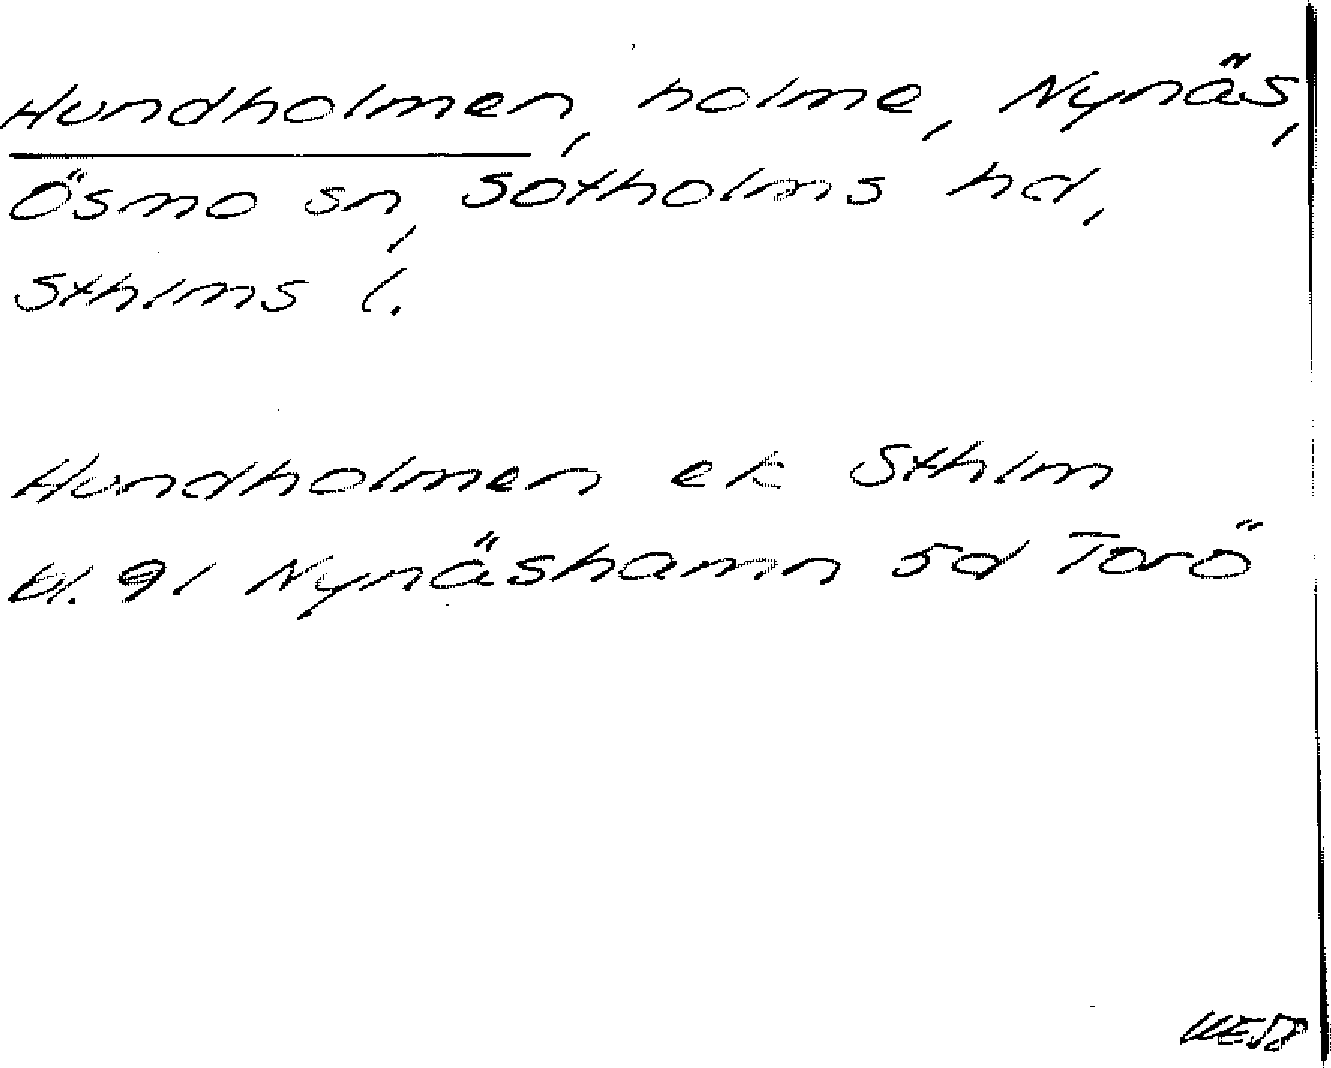 Hundholmen, holme, Nynäs,
Ösmo sn, Sotholms hd,
Sthlms l.
Hundholmen ek Sthlm
bl. 91 Nynäshamn 5d Torö